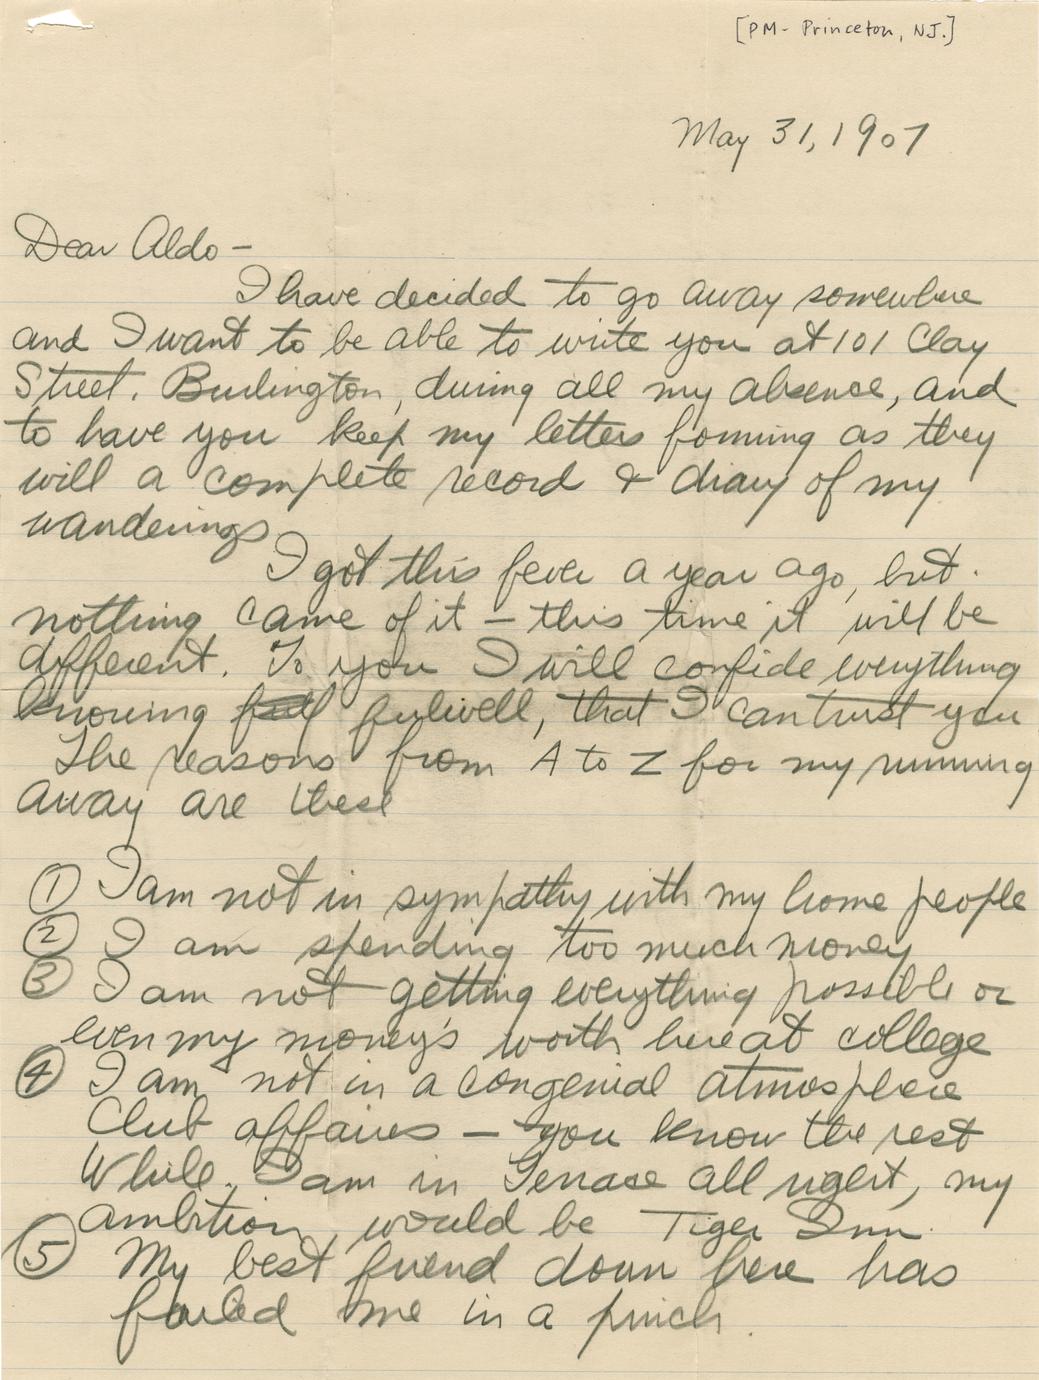 [PM- Princeton, NJ.]
May 31, 1907
Dear Aldo -
I have decided to go away somewhere
and I want to be able to write you at 101 Clay
Street. Burlington, during all my absence, and
to have you keep my letters forming as they
will a complete record & diary of my
wanderings
I got this fever a year ago, but.
nothing came of it - this time it will be
different. To you I will confide everything
knowing full well, that I can trust you
The reasons from A to Z for my running
away are these
① I am not in sympathy with my home people
② I am spending too much money
③ I am not getting everything possible or
even my money's worth here at college
④ I am not in a congenial atmosphere
Club affairs - you know the rest
While I am in Terrace all right, my
ambition would be Tiger Inn.
⑤ My best friend down here has
failed me in a pinch.